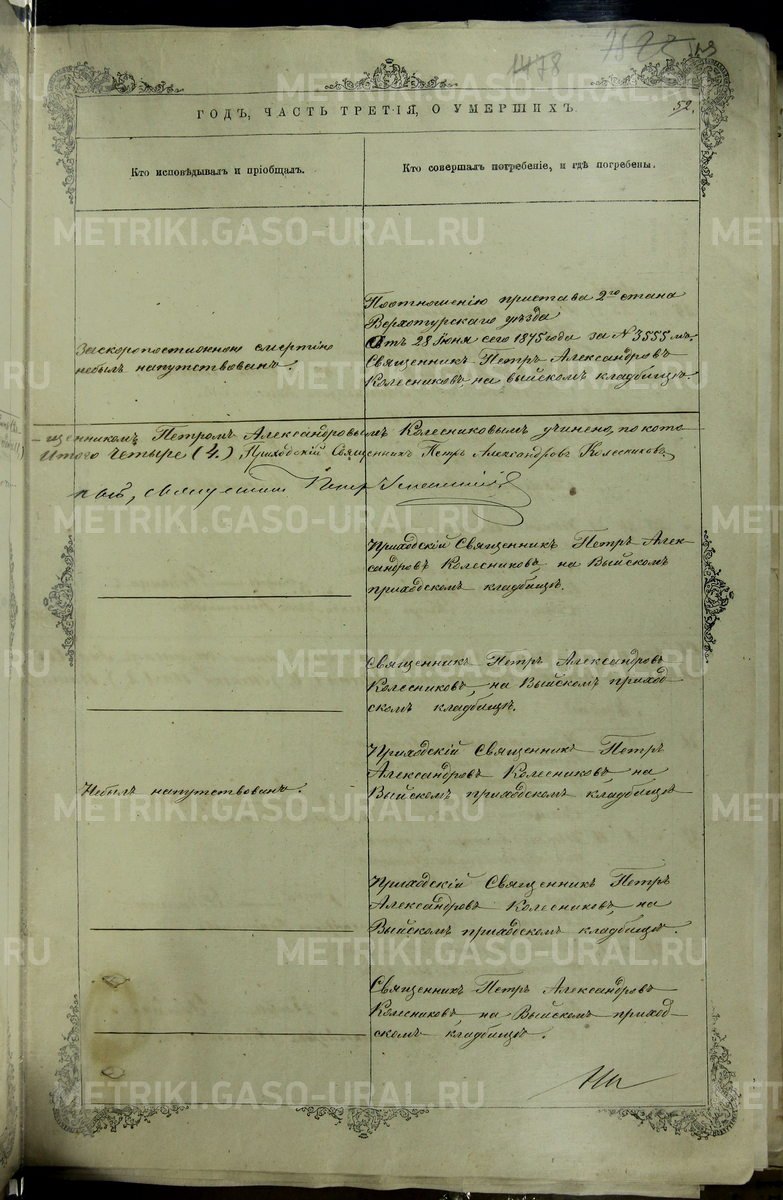 1478
ГОДЪ, ЧАСТЬ ТРЕТІЯ, О УМЕРШИХЪ.
52.
Кто исповѣдывалъ и пріобщалъ.
Кто совершалъ погребеніе, и гдѣ погребены.
За скоропостижною смертію
небылъ напутствованъ.
По отношенію пристава 2го стана
Верхотурскаго уѣзда
Отъ 28 Іюня сего 1875 года за N 3555 мъ.
Священникъ Петръ Александровъ
Колесниковъ, на Выйскомъ кладбищѣ.
-щенникомъ Петромъ Александровымъ Колесниковымъ учинено, по кото
Итого Четыре (4.) Приходскій Священникъ Петръ Александровъ Колесниковъ.
священникъ Петръ
Приходскій Священникъ Петръ Алек-
сандровъ Колесниковъ, на Выйскомъ
приходскомъ кладбищѣ.
Священникъ Петръ Александровъ
Колесниковъ, на Выйскомъ приход-
скомъ кладбищѣ.
Небылъ напутствованъ.
Приходскій Священникъ Петръ
Александровъ Колесниковъ на
Выйскомъ приходскомъ кладбищѣ
Приходскій Священникъ Петръ
Александровъ Колесниковъ, на
Выйскомъ приходскомъ кладбищѣ.
Священникъ Петръ Александровъ
Колесниковъ на Выйскомъ приход-
скомъ кладбищѣ.
METRIKI.GASO-URAL.RU